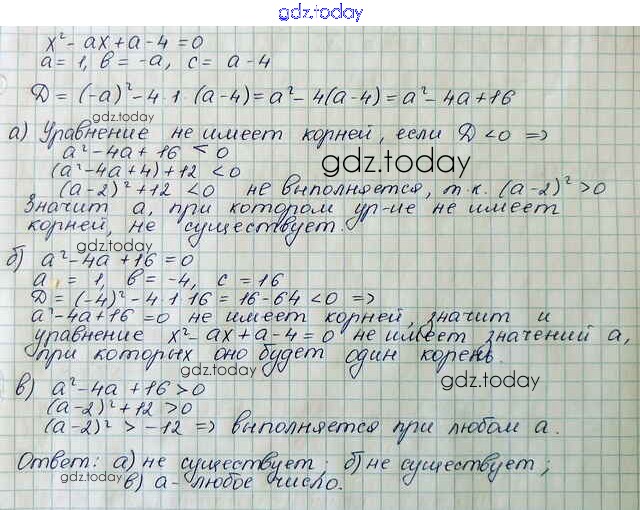 gdz.today
x² - ax + a - 4 = 0
a = 1, в = -a, с = a - 4
Д = (-a)² - 4·1·(a-4) = a² - 4(a-4) = a² - 4a + 16
gdz.today
а) Уравнение не имеет корней, если Д < 0 =>
a² - 4a + 16 < 0
gdz.today
(a² - 4a + 4) + 12 < 0
(a-2)² + 12 < 0 не выполняется, т.к. (a-2)² > 0
Значит а, при котором ур-ие не имеет
корней, не существует.
gdz.today
б) a² - 4a + 16 = 0
a = 1, в = -4, с = 16
Д = (-4)² - 4·1·16 = 16 - 64 < 0 =>
a² - 4a + 16 = 0 не имеет корней, значит и
уравнение x² - ax + a - 4 = 0 не имеет значений а,
при которых оно будет один корень.
gdz.today
в) a² - 4a + 16 > 0
gdz.today
(a-2)² + 12 > 0
(a-2)² > -12 => выполняется при любом а.
Ответ: а) не существует; б) не существует;
gdz.today
в) а - любое число.